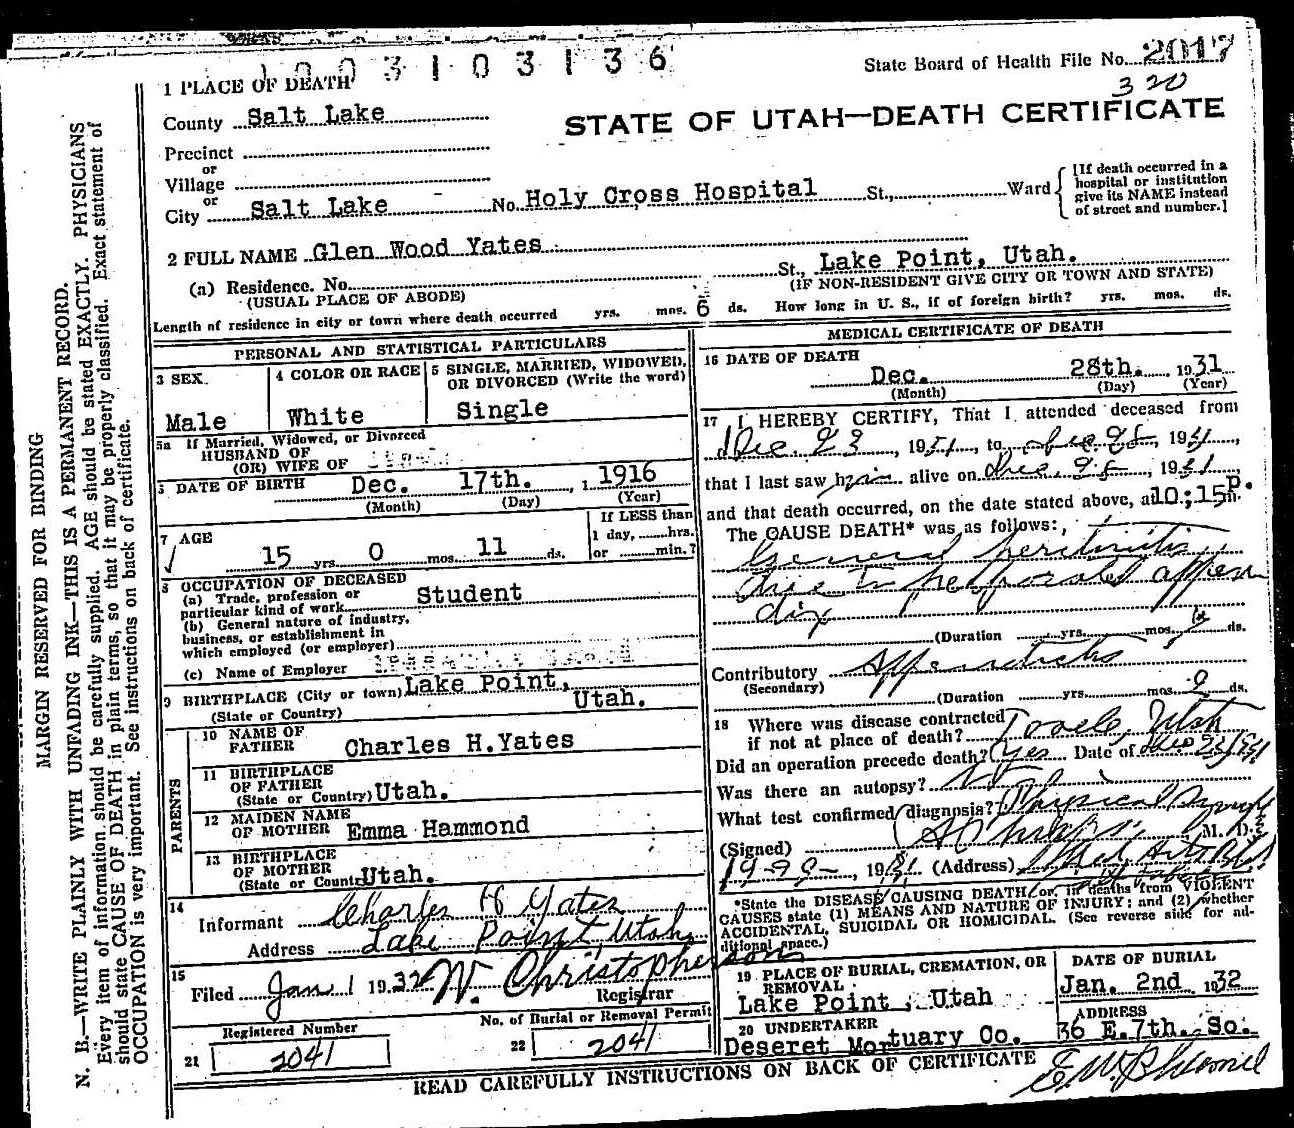 1003103136
State Board of Health File No. 2017
320
1 PLACE OF DEATH
STATE OF UTAH—DEATH CERTIFICATE
County Salt Lake
Precinct
or
Village
or
City Salt Lake No. Holy Cross Hospital St., Ward
[If death occurred in a hospital or institution give its NAME instead of street and number.]
2 FULL NAME Glen Wood Yates
(a) Residence. No. St., Lake Point, Utah.
(USUAL PLACE OF ABODE) (IF NON-RESIDENT GIVE CITY OR TOWN AND STATE)
Length of residence in city or town where death occurred yrs. mos. 6 ds. How long in U. S., if of foreign birth? yrs. mos. ds.
PERSONAL AND STATISTICAL PARTICULARS
3 SEX
Male
4 COLOR OR RACE
White
5 SINGLE, MARRIED, WIDOWED, OR DIVORCED (Write the word)
Single
5a If Married, Widowed, or Divorced
HUSBAND OF
(OR) WIFE OF
DATE OF BIRTH Dec. 17th. , 1 1916
(Month) (Day) (Year)
7 AGE
15 yrs 0 mos. 11 ds.
If LESS than
1 day, hrs.
or min.?
8 OCCUPATION OF DECEASED
(a) Trade, profession or
particular kind of work Student
(b) General nature of industry,
business, or establishment in
which employed (or employer)
(c) Name of Employer
9 BIRTHPLACE (City or town) Lake Point,
(State or Country) Utah.
PARENTS
10 NAME OF
FATHER Charles H. Yates
11 BIRTHPLACE
OF FATHER
(State or Country) Utah.
12 MAIDEN NAME
OF MOTHER Emma Hammond
13 BIRTHPLACE
OF MOTHER
(State or Country) Utah.
14
Informant Charles H Yates
Address Lake Point, Utah.
15
Filed Jan 1 1932 W. Christopherson
Registrar
Registered Number
21 2041
No. of Burial or Removal Permit
22 2041
MEDICAL CERTIFICATE OF DEATH
16 DATE OF DEATH
Dec. 28th. 1931
(Month) (Day) (Year)
17 I HEREBY CERTIFY, That I attended deceased from
Dec. 23 1931, to Dec 28, 1931,
that I last saw him alive on Dec. 28, 1931,
and that death occurred, on the date stated above, at 10:15 P. m.
The CAUSE DEATH* was as follows:
General peritonitis
due to perforated appen
dix
(Duration yrs. mos. ds.
Contributory Appendicitis
(Secondary)
(Duration yrs. mos. 9 ds.
18 Where was disease contracted
if not at place of death? Tooele, Utah
Did an operation precede death? Yes Date of Dec 23/1931
Was there an autopsy? No
What test confirmed diagnosis? Physical
(Signed) M. D.
1931 (Address) Med Arts Bld
*State the DISEASE CAUSING DEATH, or, in deaths from VIOLENT
CAUSES state (1) MEANS AND NATURE OF INJURY; and (2) whether
ACCIDENTAL, SUICIDAL OR HOMICIDAL. (See reverse side for ad-
ditional space.)
19 PLACE OF BURIAL, CREMATION, OR
REMOVAL
Lake Point, Utah
DATE OF BURIAL
Jan. 2nd 1932
20 UNDERTAKER
Deseret Mortuary Co.
ADDRESS
36 E. 7th. So.
READ CAREFULLY INSTRUCTIONS ON BACK OF CERTIFICATE
MARGIN RESERVED FOR BINDING
N. B.—WRITE PLAINLY WITH UNFADING INK—THIS IS A PERMANENT RECORD.
Every item of information should be carefully supplied. AGE should be stated EXACTLY. PHYSICIANS
should state CAUSE OF DEATH in plain terms, so that it may be properly classified. Exact statement of
OCCUPATION is very important. See instructions on back of certificate.